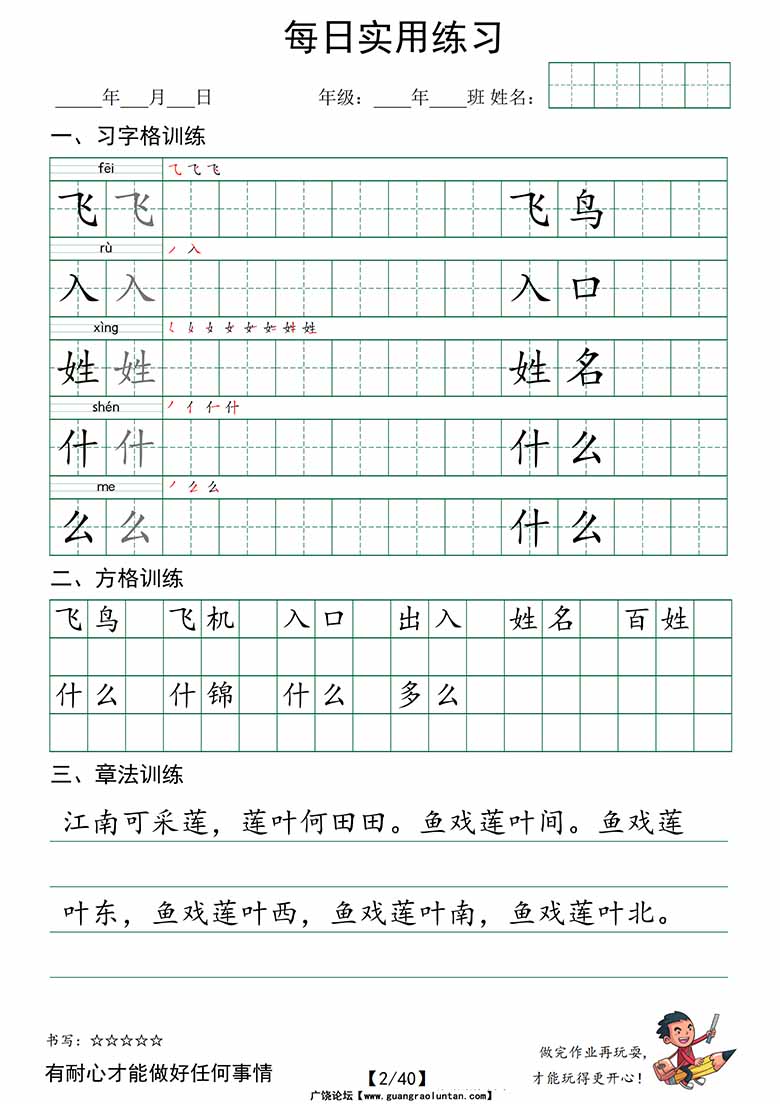 每日实用练习
_____年___月___日 年级：____年____班 姓名：
一、习字格训练
fēi 飞飞
飞飞 飞鸟
rù 丿入
入入 入口
xìng 女姓姓
姓姓 姓名
shén 丿亻什
什什 什么
me 丿么么
么么 什么
二、方格训练
飞鸟 飞机 入口 出入 姓名 百姓
什么 什锦 什么 多么
三、章法训练
江南可采莲，莲叶何田田。鱼戏莲叶间。鱼戏莲
叶东，鱼戏莲叶西，鱼戏莲叶南，鱼戏莲叶北。
书写：☆☆☆☆☆
有耐心才能做好任何事情
【2/40】
做完作业再玩耍，
才能玩得更开心！
广饶论坛【www.guangraoluntan.com】